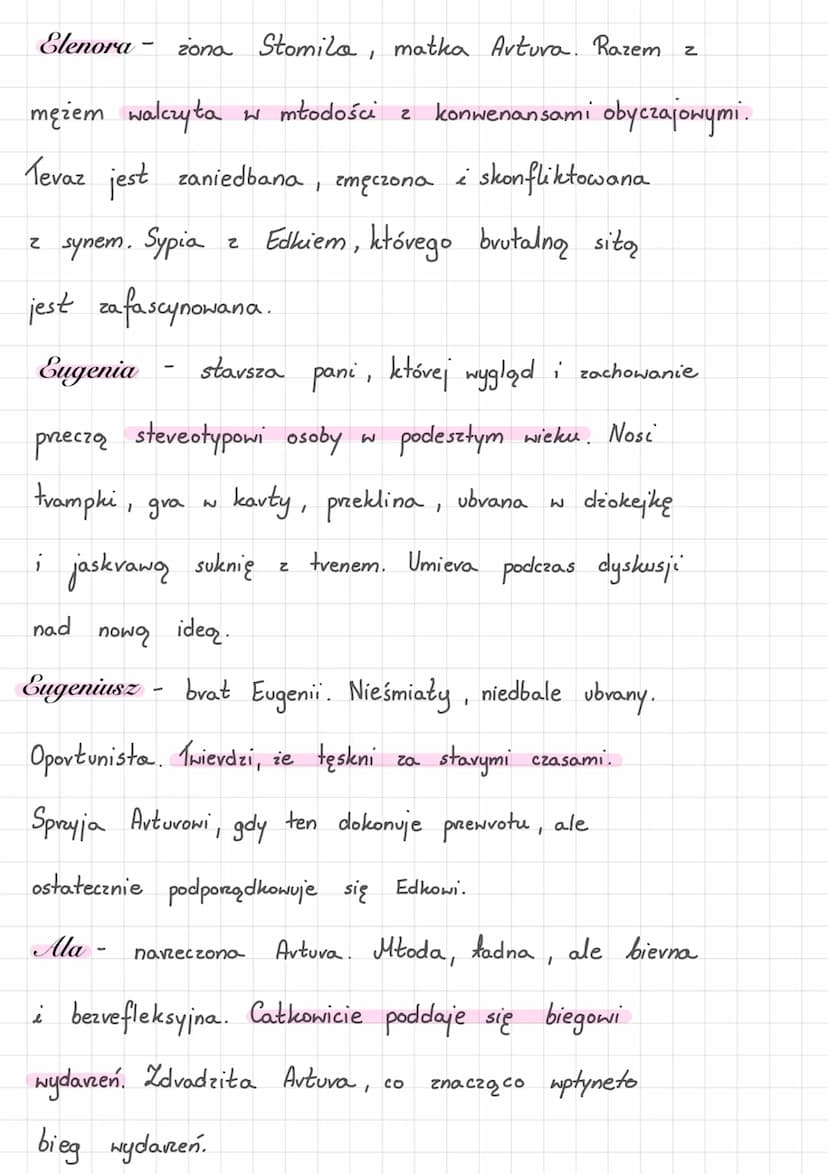 Elenora - żona Stomila, matka Artura. Razem z
mężem walczyła w młodości z konwenansami obyczajowymi.
Teraz jest zaniedbana, zmęczona i skonfliktowana
z synem. Sypia z Edkiem, którego brutalną siłą
jest zafascynowana.
Eugenia - starsza pani, której wygląd i zachowanie
przeczą stereotypowi osoby w podeszłym wieku. Nosi
trampki, gra w karty, przeklina, ubrana w dżokejkę
i jaskrawą suknię z trenem. Umiera podczas dyskusji
nad nową ideą.
Eugeniusz - brat Eugenii. Nieśmiały, niedbale ubrany.
Oportunista. Twierdzi, że tęskni za starymi czasami.
Sprzyja Arturowi, gdy ten dokonuje przewrotu, ale
ostatecznie podporządkowuje się Edkowi.
Ala - narzeczona Artura. Młoda, ładna, ale bierna
i bezrefleksyjna. Całkowicie poddaje się biegowi
wydarzeń. Zdradziła Artura, co znacząco wpłyneło
bieg wydarzeń.